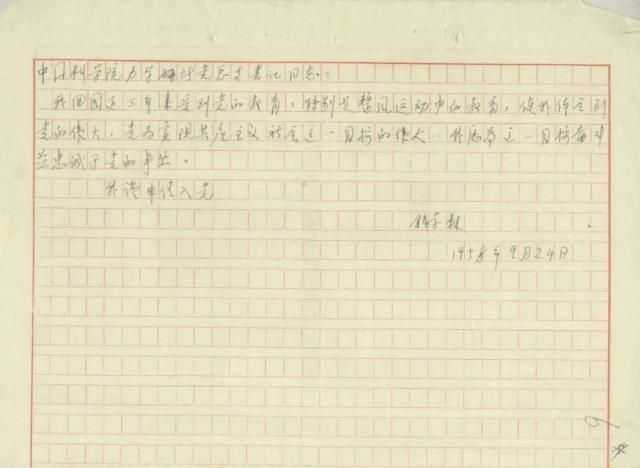 中国科学院力学研究所党总支书记同志:
我回国这二年来受到党的教育,特别是整风运动中的教育,使我体会到
党的伟大,党为实现共产主义社会这一目标的伟大。我愿为这一目标奋斗
并忠诚于党的事业。
我谨申请入党
钱学森
1958年9月24日
9